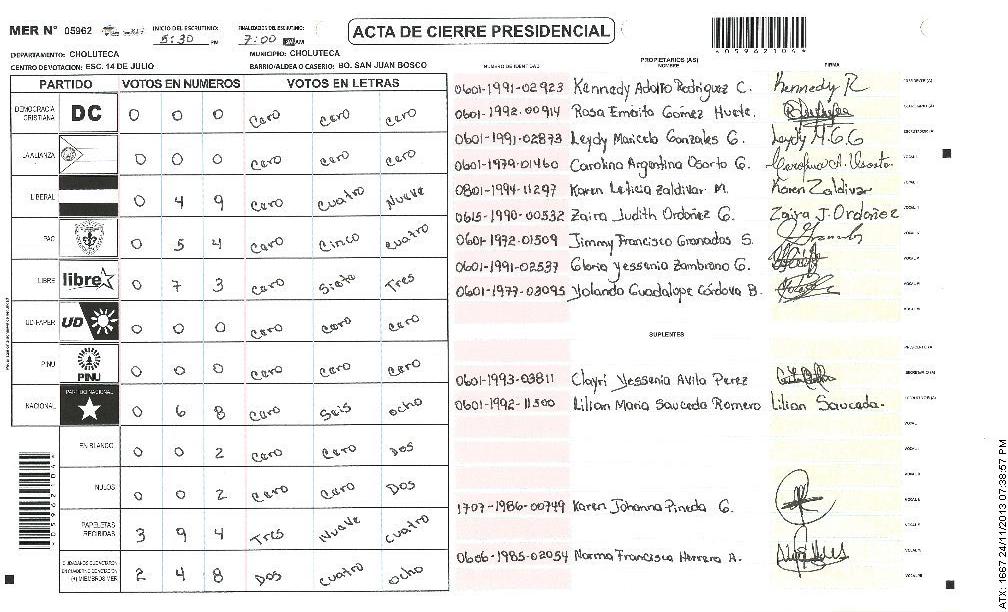 MER N° 05962
INICIO DEL ESCRUTINIO:
5:30 PM
FINALIZACION DEL ESCRUTINIO:
7:00 AM
ACTA DE CIERRE PRESIDENCIAL
DEPARTAMENTO: CHOLUTECA
MUNICIPIO: CHOLUTECA
CENTRO DE VOTACION: ESC. 14 DE JULIO
BARRIO/ALDEA O CASERIO: BO. SAN JUAN BOSCO
PARTIDO VOTOS EN NUMEROS VOTOS EN LETRAS
DEMOCRACIA CRISTIANA DC 0 0 0 Cero Cero Cero
LA ALIANZA 0 0 0 Cero Cero Cero
LIBERAL 0 4 9 Cero Cuatro Nueve
PAC 0 5 4 Cero Cinco Cuatro
LIBRE libre 0 7 3 Cero Siete Tres
UD-FAPER UD 0 0 0 Cero Cero Cero
PINU PINU 0 0 0 Cero Cero Cero
NACIONAL PARTIDO NACIONAL 0 6 8 Cero Seis Ocho
EN BLANCO 0 0 2 Cero Cero Dos
NULOS 0 0 2 Cero Cero Dos
PAPELETAS RECIBIDAS 3 9 4 Tres Nueve Cuatro
2 4 8 Dos Cuatro Ocho
PROPIETARIOS (AS)
NUMERO DE IDENTIDAD NOMBRE FIRMA
0601-1991-02923 Kennedy Adolfo Rodriguez C. Kennedy R
0601-1992-00914 Rosa Emérita Gómez Huete.
0601-1991-02873 Leydy Maricela Gonzales G. Leydy M.G.G
0601-1979-01460 Carolina Argentina Osorto G.
0801-1994-11297 Karen Leticia Zaldivar M. Karen Zaldivar
0615-1990-00532 Zaira Judith Ordoñez G. Zaira J. Ordoñez
0601-1972-01509 Jimmy Francisco Granados S.
0601-1991-02537 Gloria Yessenia Zambrano G.
0601-1977-03095 Yolanda Guadalupe Córdova B.
SUPLENTES
0601-1993-03811 Clayri Yessenia Avila Perez
0601-1992-11300 Lilian Maria Sauceda Romero Lilian Sauceda.
1707-1986-00749 Karen Johanna Pineda G.
0606-1985-02054 Norma Francisca Herrera A.
0 5 9 6 2 1 0 4
ATX: 1667 24/11/2013 07:38:57 PM